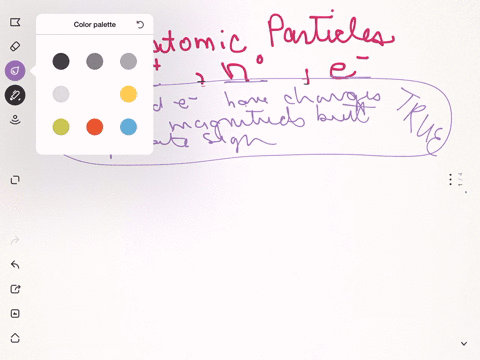 Color palette
atomic Particles
+ , n° , e⁻
d e⁻ have charges
magnitude but
ate sign
TRUE
1/4